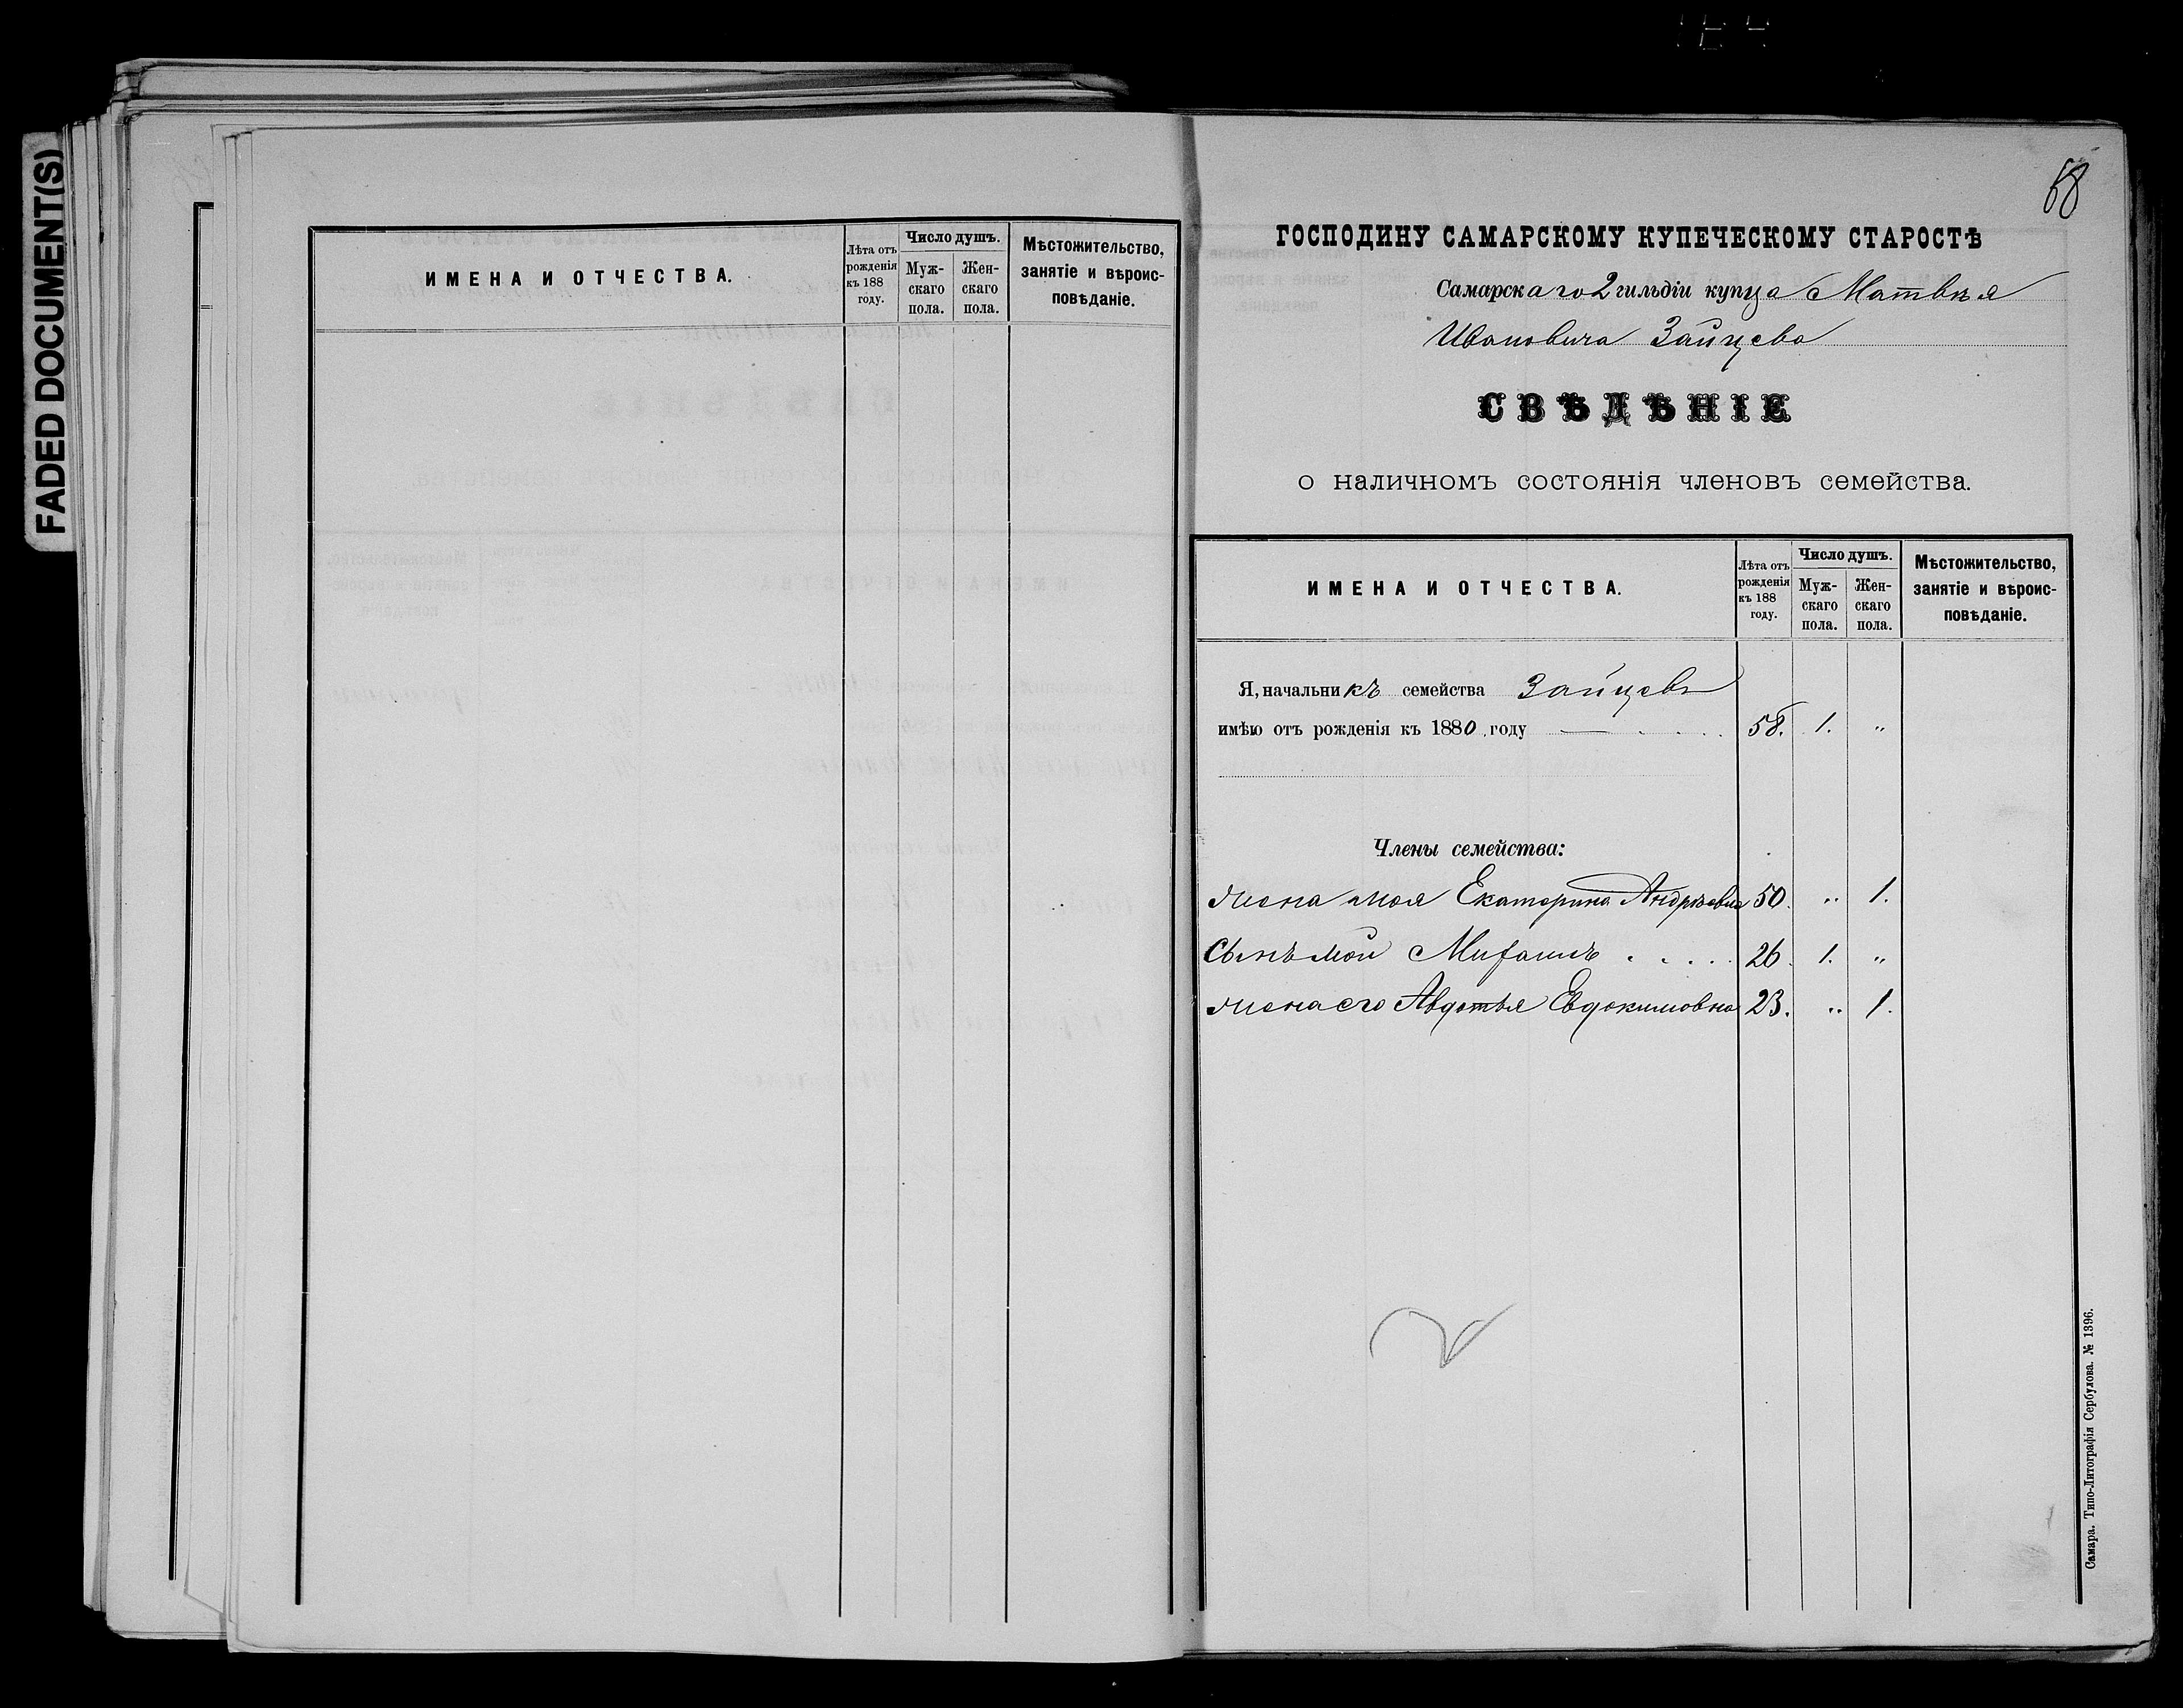 FADED DOCUMENT(S)
ИМЕНА И ОТЧЕСТВА.
Лѣта отъ рожденія къ 188 году.
Число душъ.
Мужскаго пола.
Женскаго пола.
Мѣстожительство, занятіе и вѣроисповѣданіе.
68
ГОСПОДИНУ САМАРСКОМУ КУПЕЧЕСКОМУ СТАРОСТѢ
Самарскаго 2 гильдіи купца Матвѣя
Ивановича Зайцева
СВѢДѢНІЕ
о наличномъ состоянія членовъ семейства.
ИМЕНА И ОТЧЕСТВА.
Лѣта отъ рожденія къ 188 году.
Число душъ.
Мужскаго пола.
Женскаго пола.
Мѣстожительство, занятіе и вѣроисповѣданіе.
Я, начальникъ семейства Зайцевъ
имѣю отъ рожденія къ 1880 году 58. 1. "
Члены семейства:
жена моя Екатерина Андрѣевна 50. " 1.
Сынъ мой Михаилъ 26. 1. "
жена его Авдотья Евдокимовна 23. " 1.
Самара. Типо-Литографія Сербулова. № 1396.